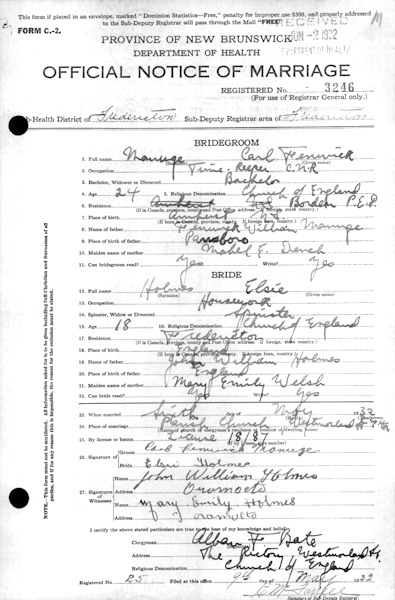 This form if placed in an envelope, marked "Dominion Statistics—Free," penalty for improper use $300, and properly addressed
to the Sub-Deputy Registrar will pass through the Mail "FREE"
FORM C.-2.
RECEIVED
JUN -2 1932
DEPARTMENT OF HEALTH
M
PROVINCE OF NEW BRUNSWICK
DEPARTMENT OF HEALTH
OFFICIAL NOTICE OF MARRIAGE
REGISTERED NO. 3246
(For use of Registrar General only.)
Sub-Health District of Fredericton Sub-Deputy Registrar area of
BRIDEGROOM
1. Full name Carl Fenwick
(Surname) (Given name)
2. Occupation Time Keeper C.N.R
3. Bachelor, Widower or Divorced Bachelor
4. Age 24 5. Religious Denomination Church of England
6. Residence Amherst N.S. Borden P.E.I.
7. Place of birth Amherst N.S.
8. Name of father Fenwick William
9. Place of birth Parrsboro
10. Maiden name of mother Mabel E.
11. Can bridegroom read? Yes Write? Yes
BRIDE
12. Full name Holmes Elsie
(Surname) (Given name)
13. Occupation Housework
14. Spinster, Widow or Divorced Spinster
15. Age 18 16. Religious Denomination Church of England
17. Residence Fredericton
18. Place of birth England
19. Name of father John William Holmes
20. Place of birth England
21. Maiden name of mother Mary Emily Welsh
22. Can bride read? Yes Write? Yes
23. When married sixth May 1932
24. Place of marriage Parish Church Westmorland
25. By license or banns License 1887
26. Signature of
Groom Carl Fenwick
Bride Elsie Holmes
27. Signature of Witnesses
John William Holmes
Oromocto
Mary Emily Holmes
Oromocto
I certify the above stated particulars are true to the best of my knowledge and belief.
Clergyman Alban F. Bate
The Rectory Westmorland St.
Religious Denomination Church of England
Registered No. 25 Filed at this office 9th May 1932
Signature of Sub-Deputy Registrar
NOTE. This form must not be mutilated. All information asked for is to be given including full Christian and Surnames of all